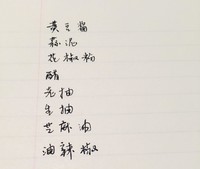 黄豆酱
蒜泥
花椒粉
醋
老抽
生抽
芝麻油
油辣椒